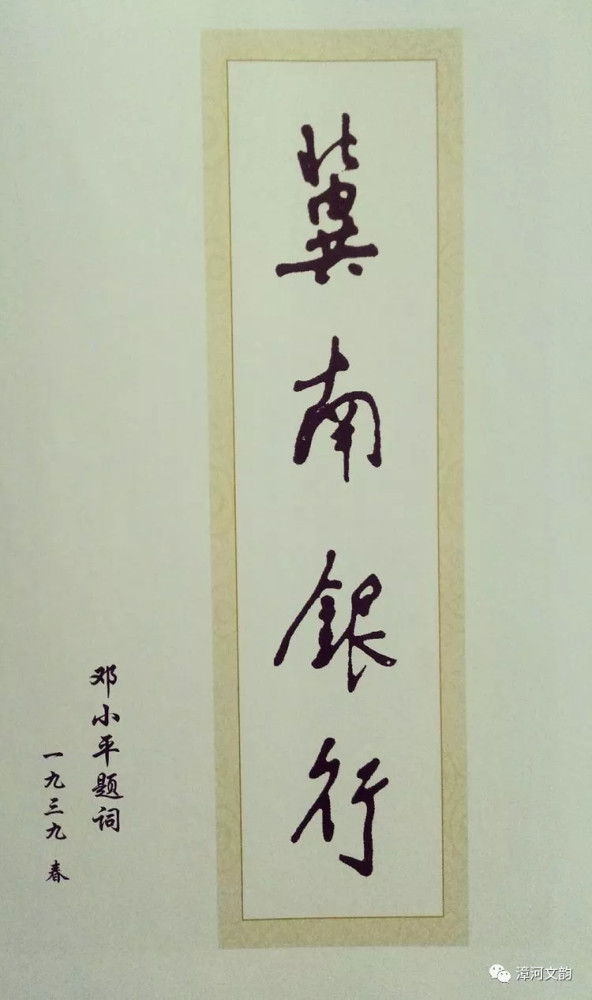 冀南銀行
邓小平题词
一九三九 春
漳河文韵